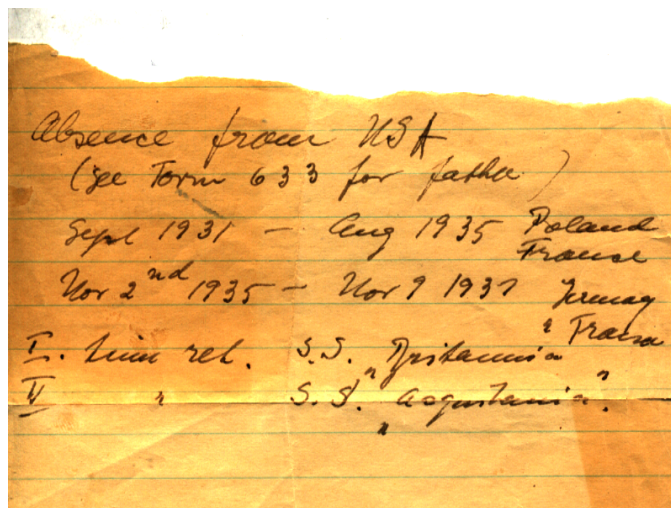 Absence from USA
(see Form 633 for father)
Sept 1931 — Aug 1935 Poland
France
Nov 2nd 1935 — Nov 9 1937
" France
I. ret. S.S. "Britannia
II " S.S. "Aquitania".
"